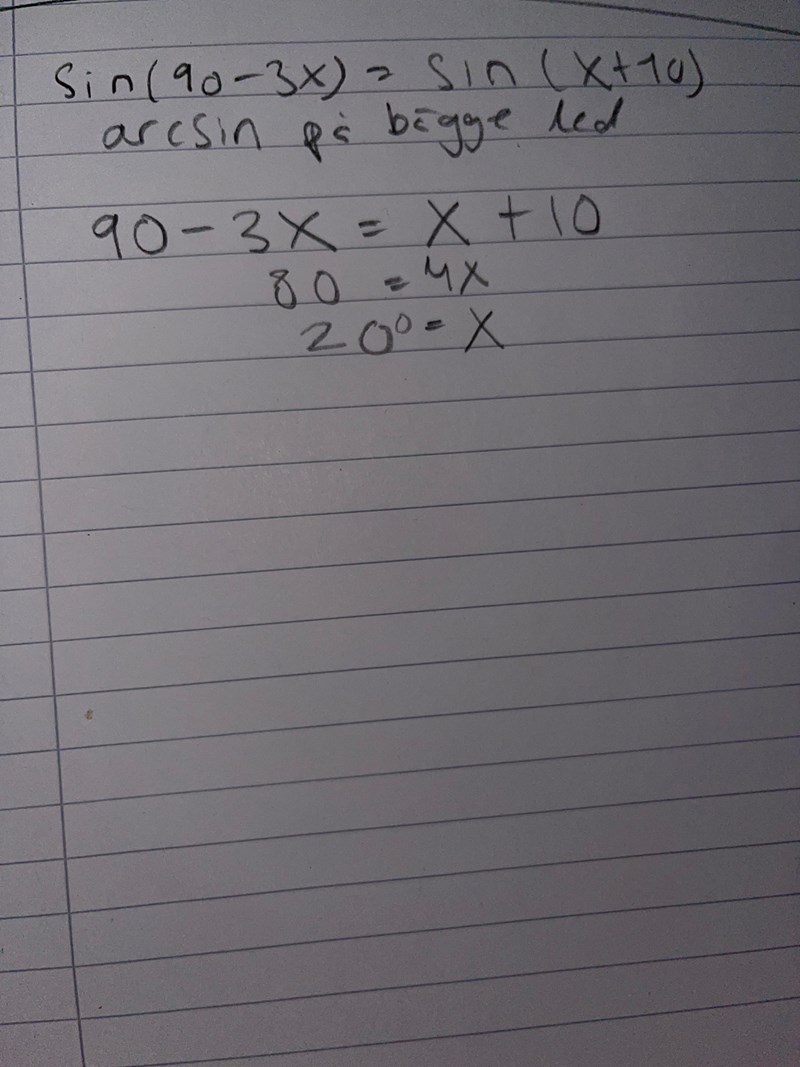 Sin(90-3x) = Sin (x+10)
arcsin på bägge led
90-3x = x+10
80 = 4x
20° = x